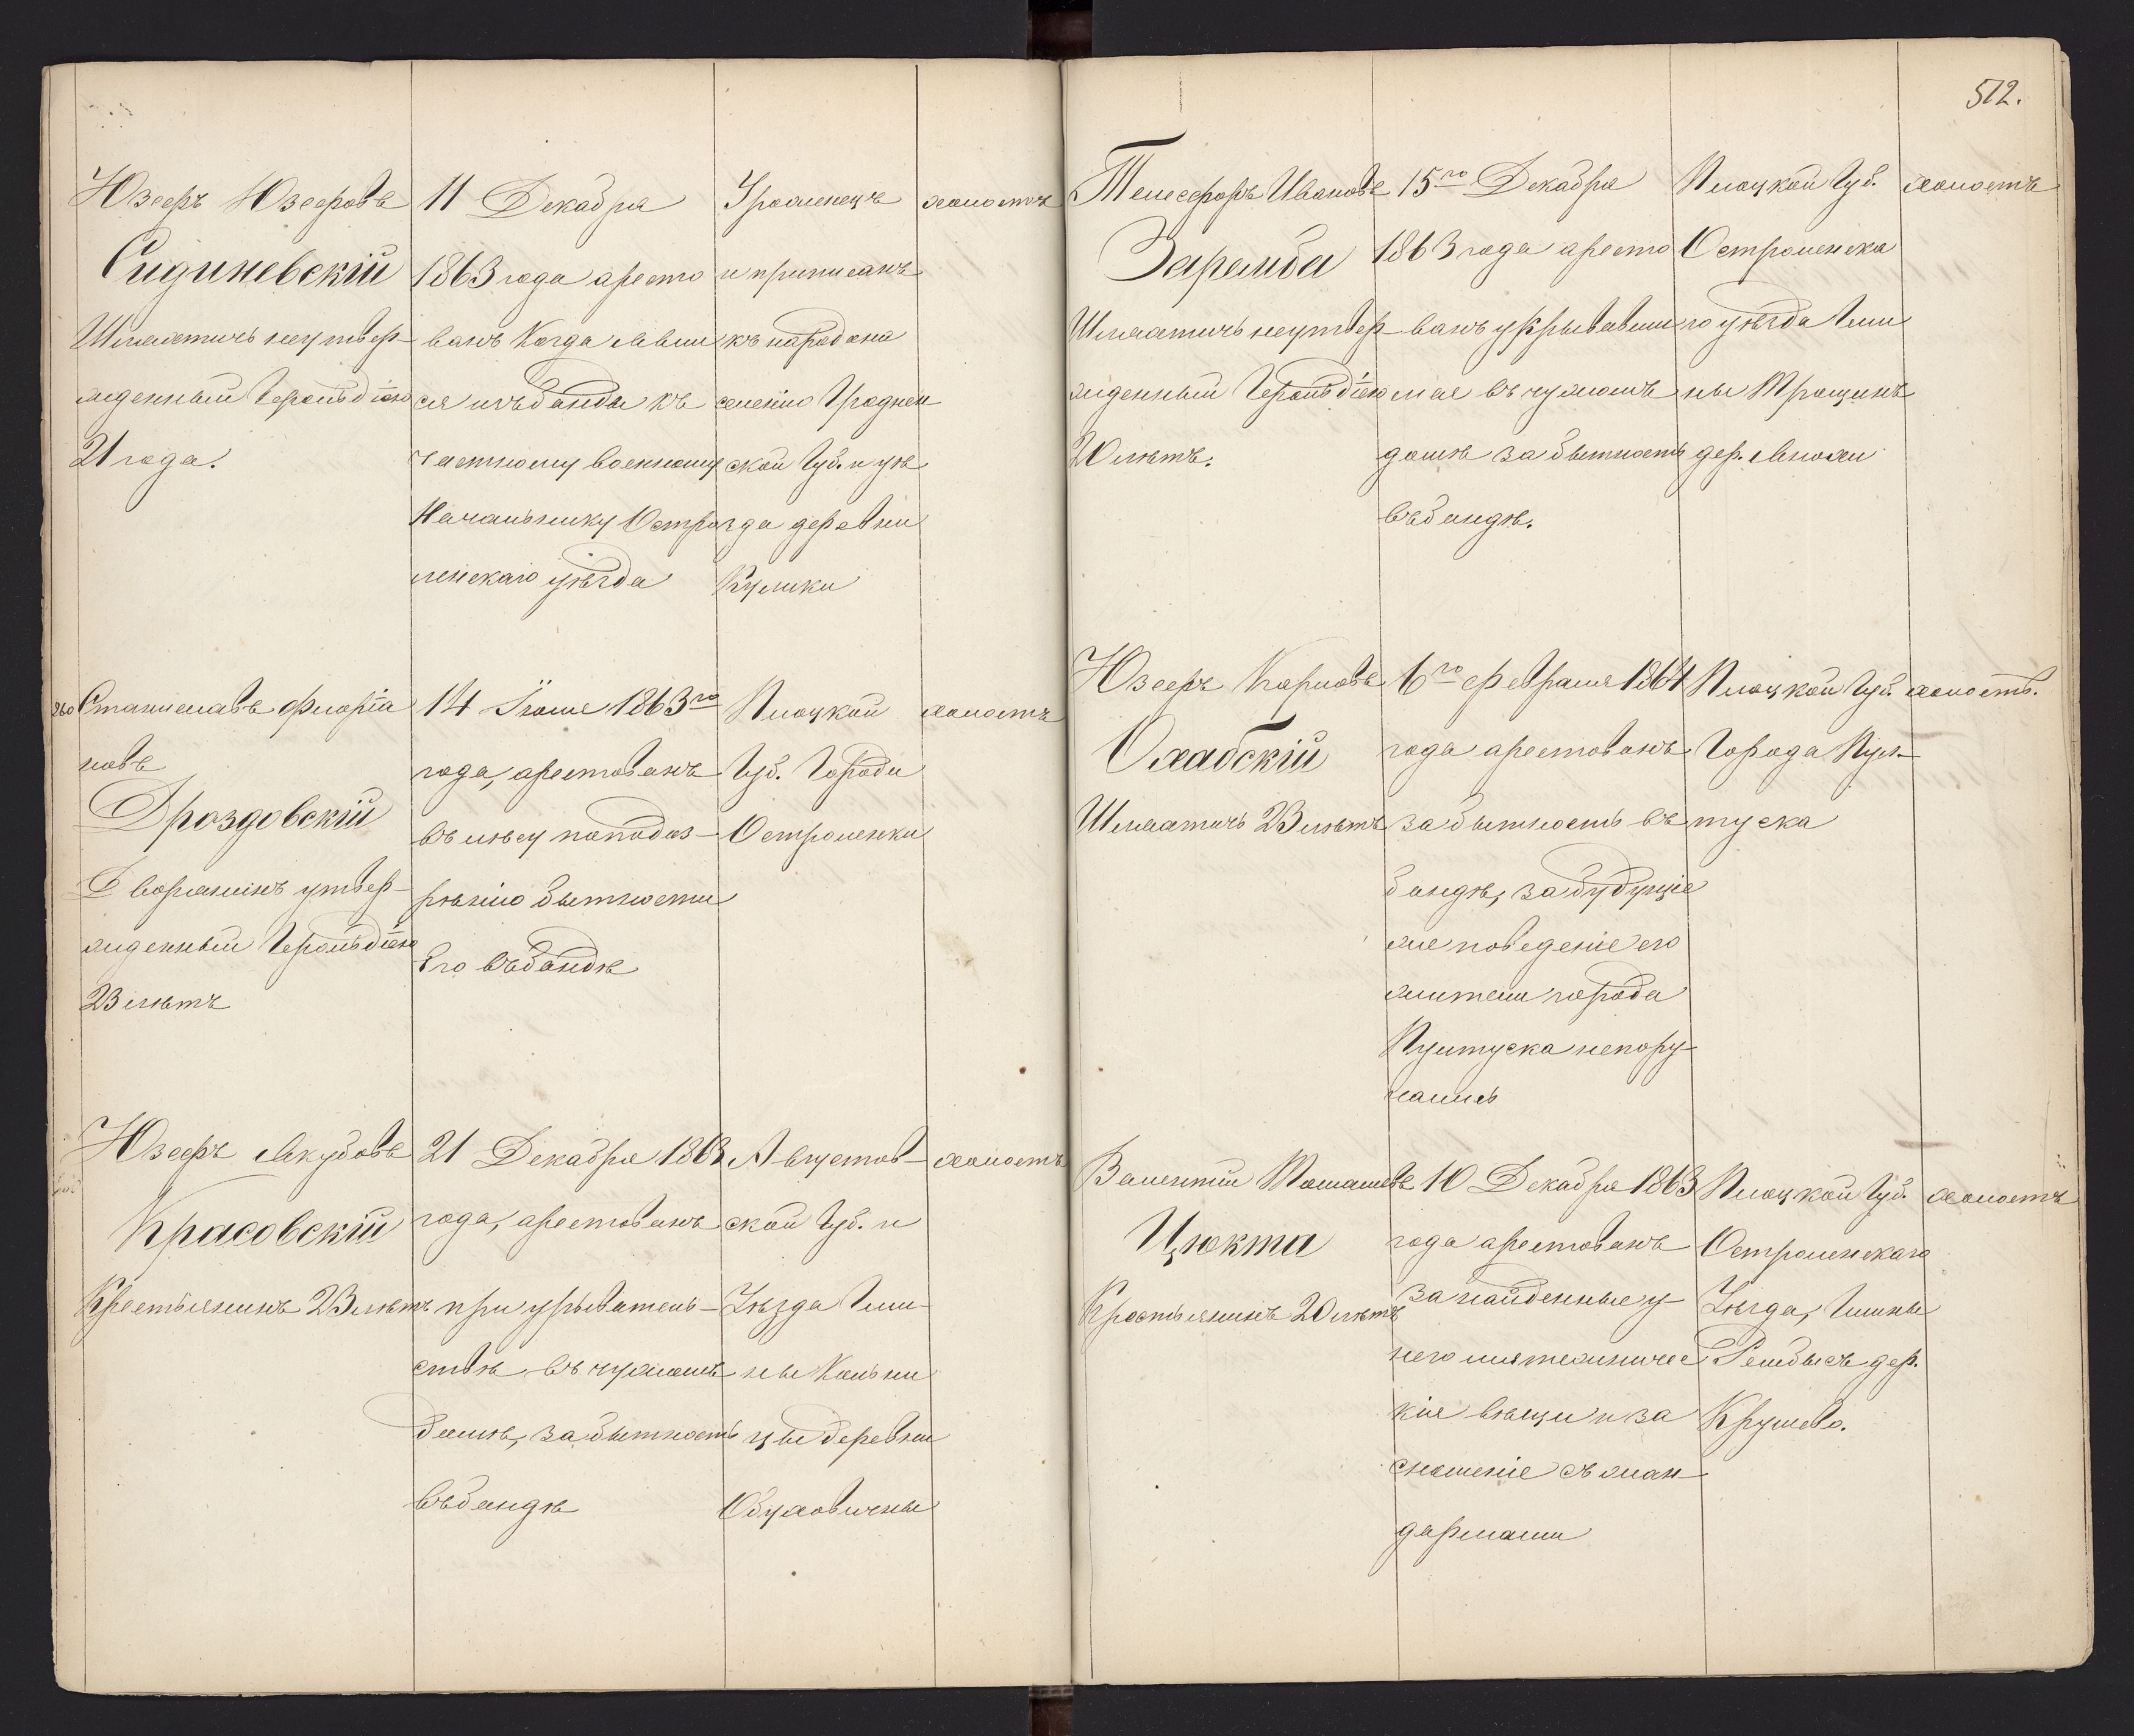 Юзефъ Юзефовъ
Сидиневскій
Шляхтичь неутвер-
жденный Герольдіею
21 года.
11 Декабря
1863 года аресто
ванъ Когда явил
ся изъ банды къ
частному военному
Начальнику Остро
ленскаго уѣзда
Уроженецъ
и приписанъ
къ народона
селенію Гроднен
ской Губ. и уѣ
зда деревни
Кулики
холостъ
260 Станиславъ Флоріа
новъ
Дроздовскій
Дворянинъ утвер-
жденный Герольдіею
23 лѣтъ
14 Іюля 1863го
года, арестованъ
въ лѣсу по подоз-
рѣнію бытности
Его въ бандѣ
Плоцкой
Губ. Города
Остроленки
холостъ
Юзефъ Якубовъ
Красовскій
Крестьянинъ 23 лѣтъ
21 Декабря 1863
года, арестованъ
при укрыватель-
ствѣ въ чужомъ
домѣ, за бытность
въ бандѣ
Августов-
ской Губ. и
Уѣзда Гми-
ны
цы деревни
Обуховичны
холостъ
512.
Телесфоръ Ивановъ
Заремба
Шляхтичь неутвер-
жденный Герольдіею
20 лѣтъ.
15го Декабря
1863 года аресто
ванъ укрывавши
мся въ чужомъ
домѣ за бытность
въ бандѣ.
Плоцкой Губ.
Остроленска
го уѣзда Гми
ны Трощинъ
дер.
холостъ
Юзефъ Карловъ
Охабскій
Шляхтичь 23 лѣтъ
6го февраля 1864
года арестованъ
за бытность въ
бандѣ, за будущіе
же поведеніе его
жители города
Пултуска непору
чались
Плоцкой Губ.
Города Пул-
туска
холостъ.
Валентій Томашевъ
Цюкта
Крестьянинъ 20 лѣтъ
10 Декабря 1863
года арестованъ
за найденные у
него мятежничес
кіе вѣщи и за
сношеніе съ жан
дармами
Плоцкой Губ.
Остроленскаго
Уѣзда, Гмины
дер.
Крушево.
холостъ